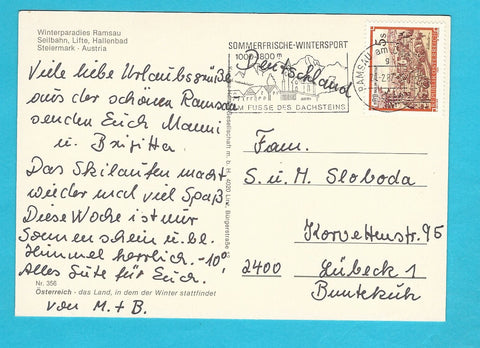 Winterparadies Ramsau
Seilbahn, Lifte, Hallenbad
Steiermark - Austria
Viele liebe Urlaubsgrüße
aus der schönen Ramsau
senden Euch Manni
u. Brigitta.
Das Skilaufen macht
wieder mal viel Spaß
Diese Woche ist nur
Sonnenschein u. bl.
Himmel herrlich. -10°
Alles Gute für Euch.
Nr. 356
Österreich - das Land, in dem der Winter stattfindet
von M. + B.
gesellschaft m. b. H., 4020 Linz, Bürgerstraße
SOMMERFRISCHE-WINTERSPORT
1000-1800 m
AM FUSSE DES DACHSTEINS
RAMSAU
5s
Deutschland
Fam.
S. u. M. Sloboda
Korvettenstr. 95
2400 Lübeck 1
Buntekuh